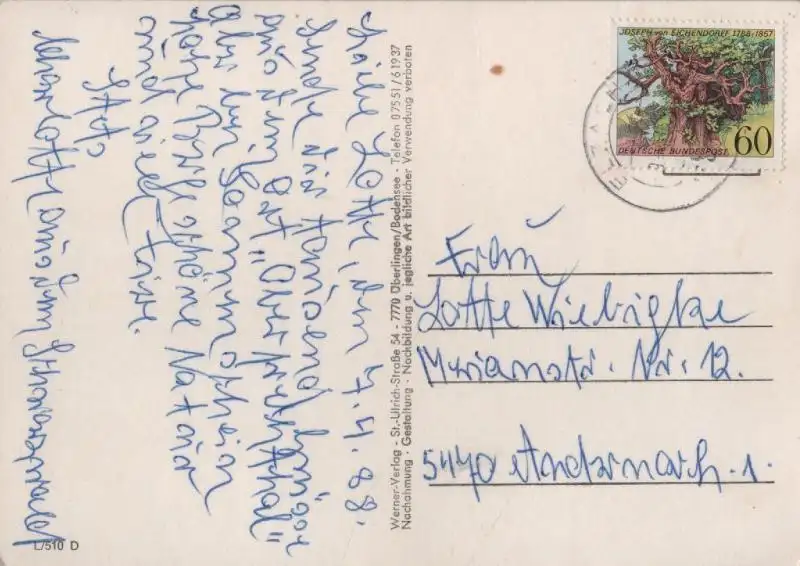 Liebe Lotte, den 7.4.88.
Sende dir tausend
aus dem Ort "Oberprechtal"
aber bei
schöne Natur
und viel Tiere.
aus dem Schwarzwald
Werner-Verlag · St.-Ulrich-Straße 54 · 7770 Überlingen/Bodensee · Telefon 07551/61937
Nachahmung · Gestaltung · Nachbildung u. jegliche Art bildlicher Verwendung verboten
L/510 D
JOSEPH von EICHENDORFF 1788-1857
60
DEUTSCHE BUNDESPOST
Frau
Lotte Wiebigke
Marianstr. Nr. 12.
5470 Andernach. 1.